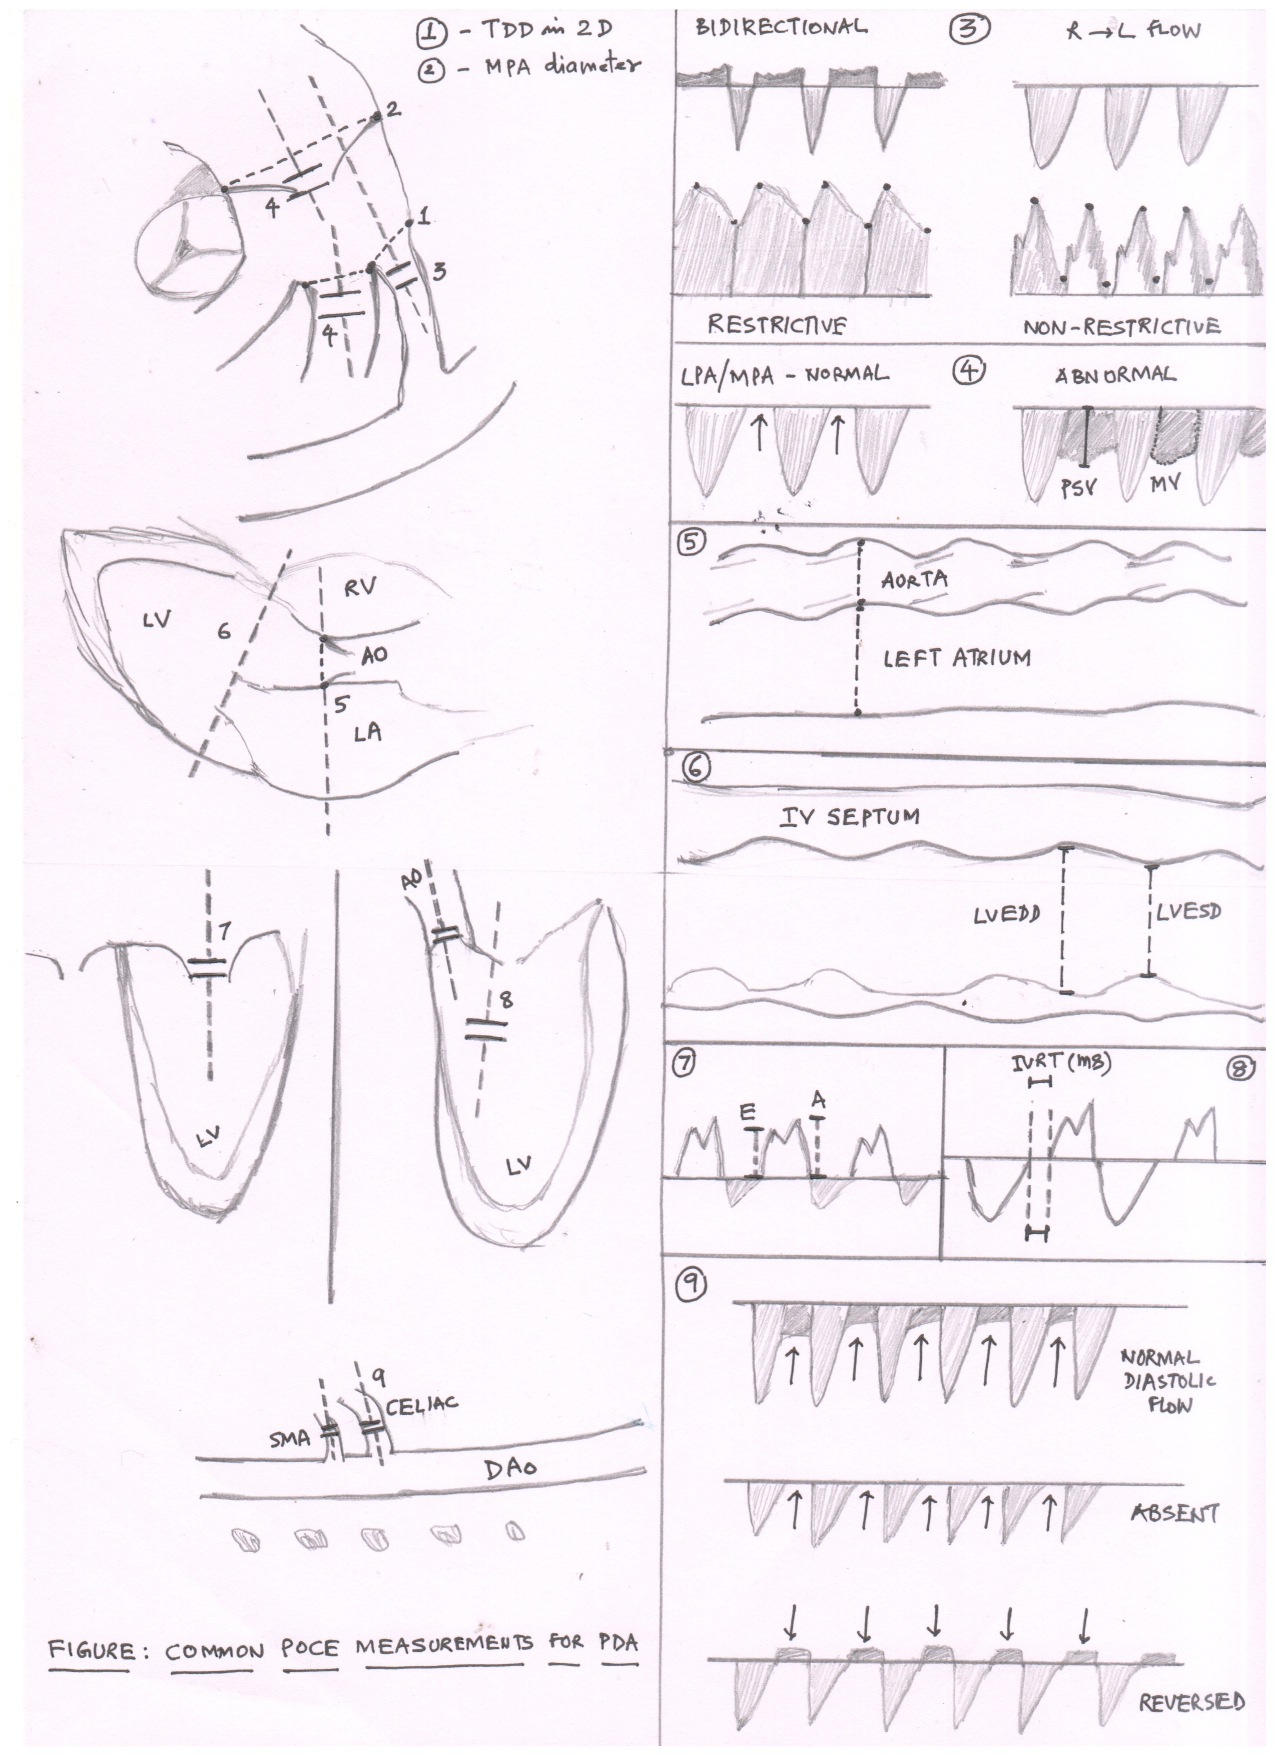 ① - TDD in 2D
② - MPA diameter
2
4
1
3
4
LV
6
RV
AO
5
LA
7
LV
AO
8
LV
9
CELIAC
SMA
DAO
FIGURE: COMMON POCE MEASUREMENTS FOR PDA
BIDIRECTIONAL
③
R→L FLOW
RESTRICTIVE
NON-RESTRICTIVE
LPA/MPA - NORMAL
④
ABNORMAL
PSV
MV
⑤
AORTA
LEFT ATRIUM
⑥
IV SEPTUM
LVEDD
LVESD
⑦
E
A
IVRT (ms)
⑧
⑨
NORMAL
DIASTOLIC
FLOW
ABSENT
REVERSED